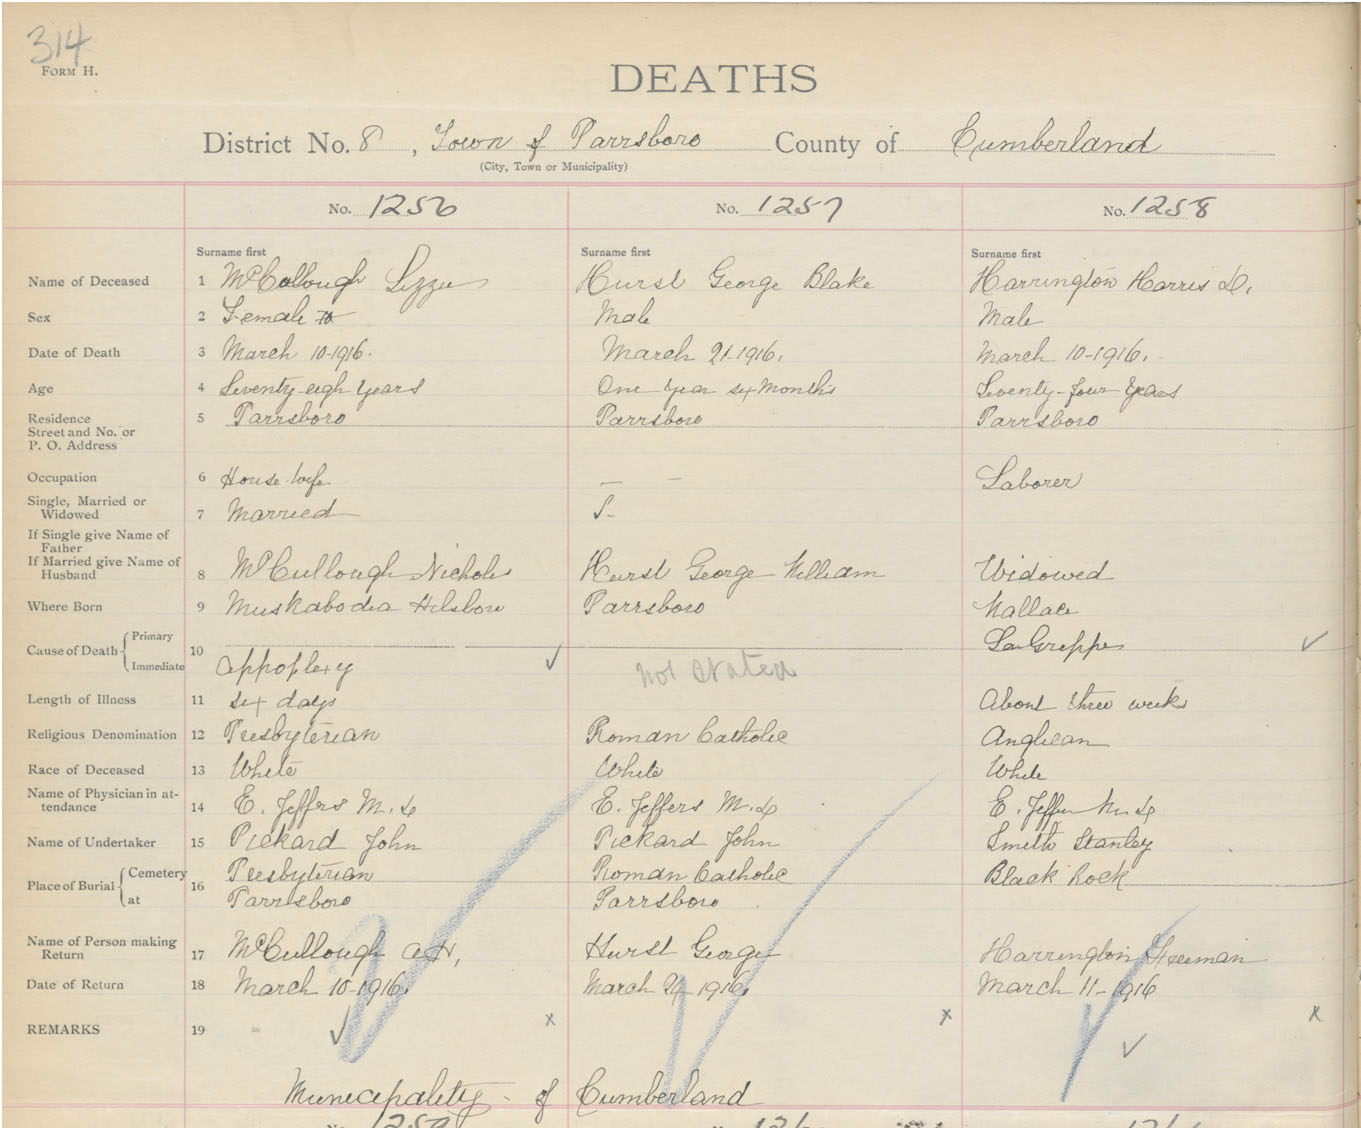 314
FORM H.
DEATHS
District No. 8, Town of Parrsboro County of Cumberland
(City, Town or Municipality)
No. 1256 No. 1257 No. 1258
Surname first Surname first Surname first
Name of Deceased 1 McCollough Lizzie Hurst George Blake Harrington Harris D.
Sex 2 Female Male Male
Date of Death 3 March 10-1916. March 21-1916. March 10-1916.
Age 4 Seventy-eigh Years One Year six Months Seventy-four Years
Residence 5 Parrsboro Parrsboro Parrsboro
Street and No. or
P. O. Address
Occupation 6 House-wife — — Laborer
Single, Married or
Widowed 7 Married S.
If Single give Name of
Father
If Married give Name of
Husband 8 McCullough Nicholis Hurst George William Widowed
Where Born 9 Parrsboro Wallace
Cause of Death { Primary 10 La Greppe ✓
Immediate Appoplexy ✓ not stated
Length of Illness 11 six days About three weeks
Religious Denomination 12 Presbyterian Roman Catholic Anglican
Race of Deceased 13 White White White
Name of Physician in at-
tendance 14 E. Jeffers M.D E. Jeffers M.D E. Jeffers M.D
Name of Undertaker 15 Pickard John Pickard John Smith Stanley
Place of Burial { Cemetery 16 Presbyterian Roman Catholic Black Rock
at Parrsboro Parrsboro
Name of Person making
Return 17 McCullough A.H. Hurst George Harrington Freeman
Date of Return 18 March 10-1916. March 1916. March 11-1916
REMARKS 19 ✓ x x x
✓
Municipality of Cumberland
No. 1259